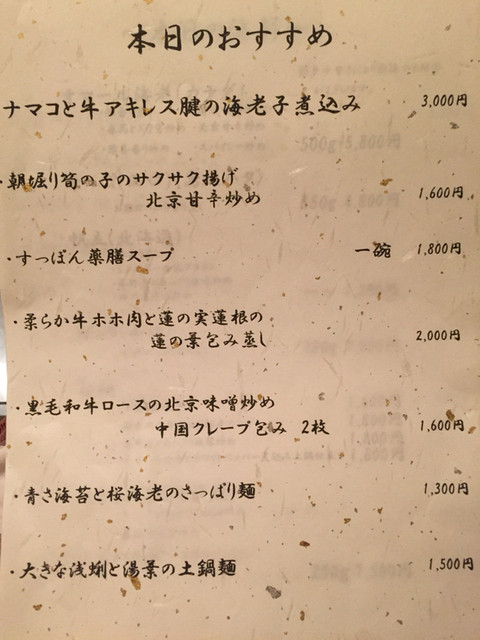 本日のおすすめ
ナマコと牛アキレス腱の海老子煮込み 3,000円
・朝堀り筍の子のサクサク揚げ
北京甘辛炒め 1,600円
・すっぽん薬膳スープ 一碗 1,800円
・柔らか牛ホホ肉と蓮の実蓮根の
蓮の葉包み蒸し 2,000円
・黒毛和牛ロースの北京味噌炒め
中国クレープ包み 2枚 1,600円
・青さ海苔と桜海老のさっぱり麺 1,300円
・大きな浅蜊と湯葉の土鍋麺 1,500円